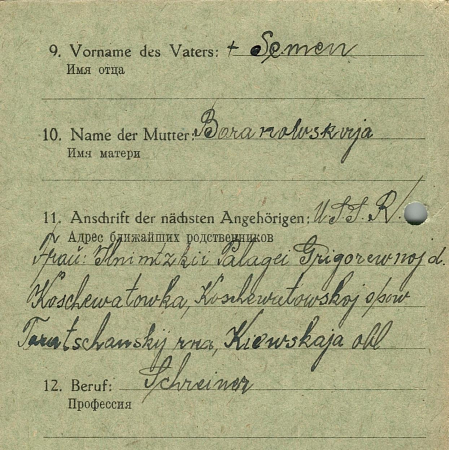 9. Vorname des Vaters: + Semen
Имя отца
10. Name der Mutter: Baranowskaja
Имя матери
11. Anschrift der nächsten Angehörigen: USSR
Адрес ближайших родственников
Frau: Palagei Grigorewnoj d.
Koschewatowka, Koschewatowskoj
Taratschanskij rna, Kiewskaja obl
12. Beruf: Schreiner
Профессия